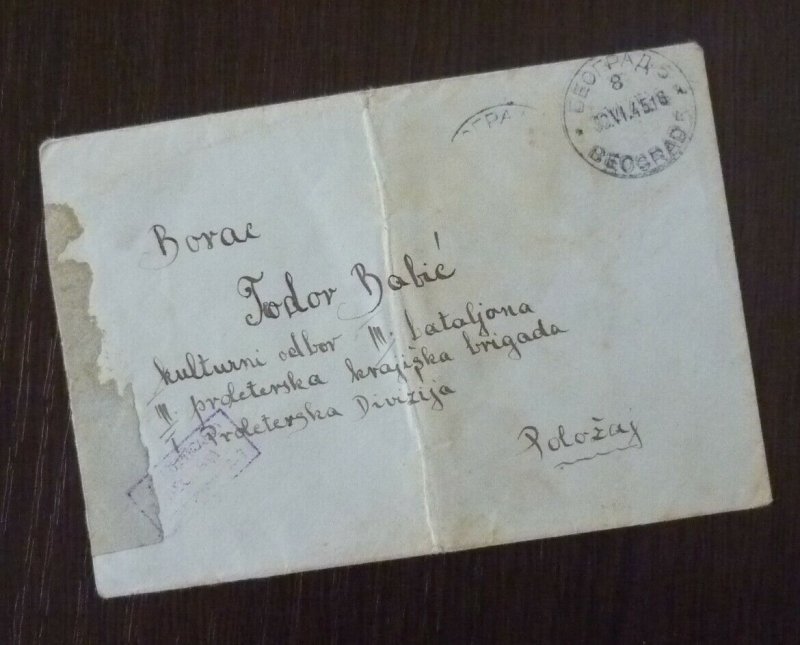 БЕОГРАД 5
8
VI.45.18
BEOGRAD 5
Borac
Todor Babić
kulturni odbor III. bataljona
III. proleterska krajiška brigada
I Proleterska Divizija
Položaj